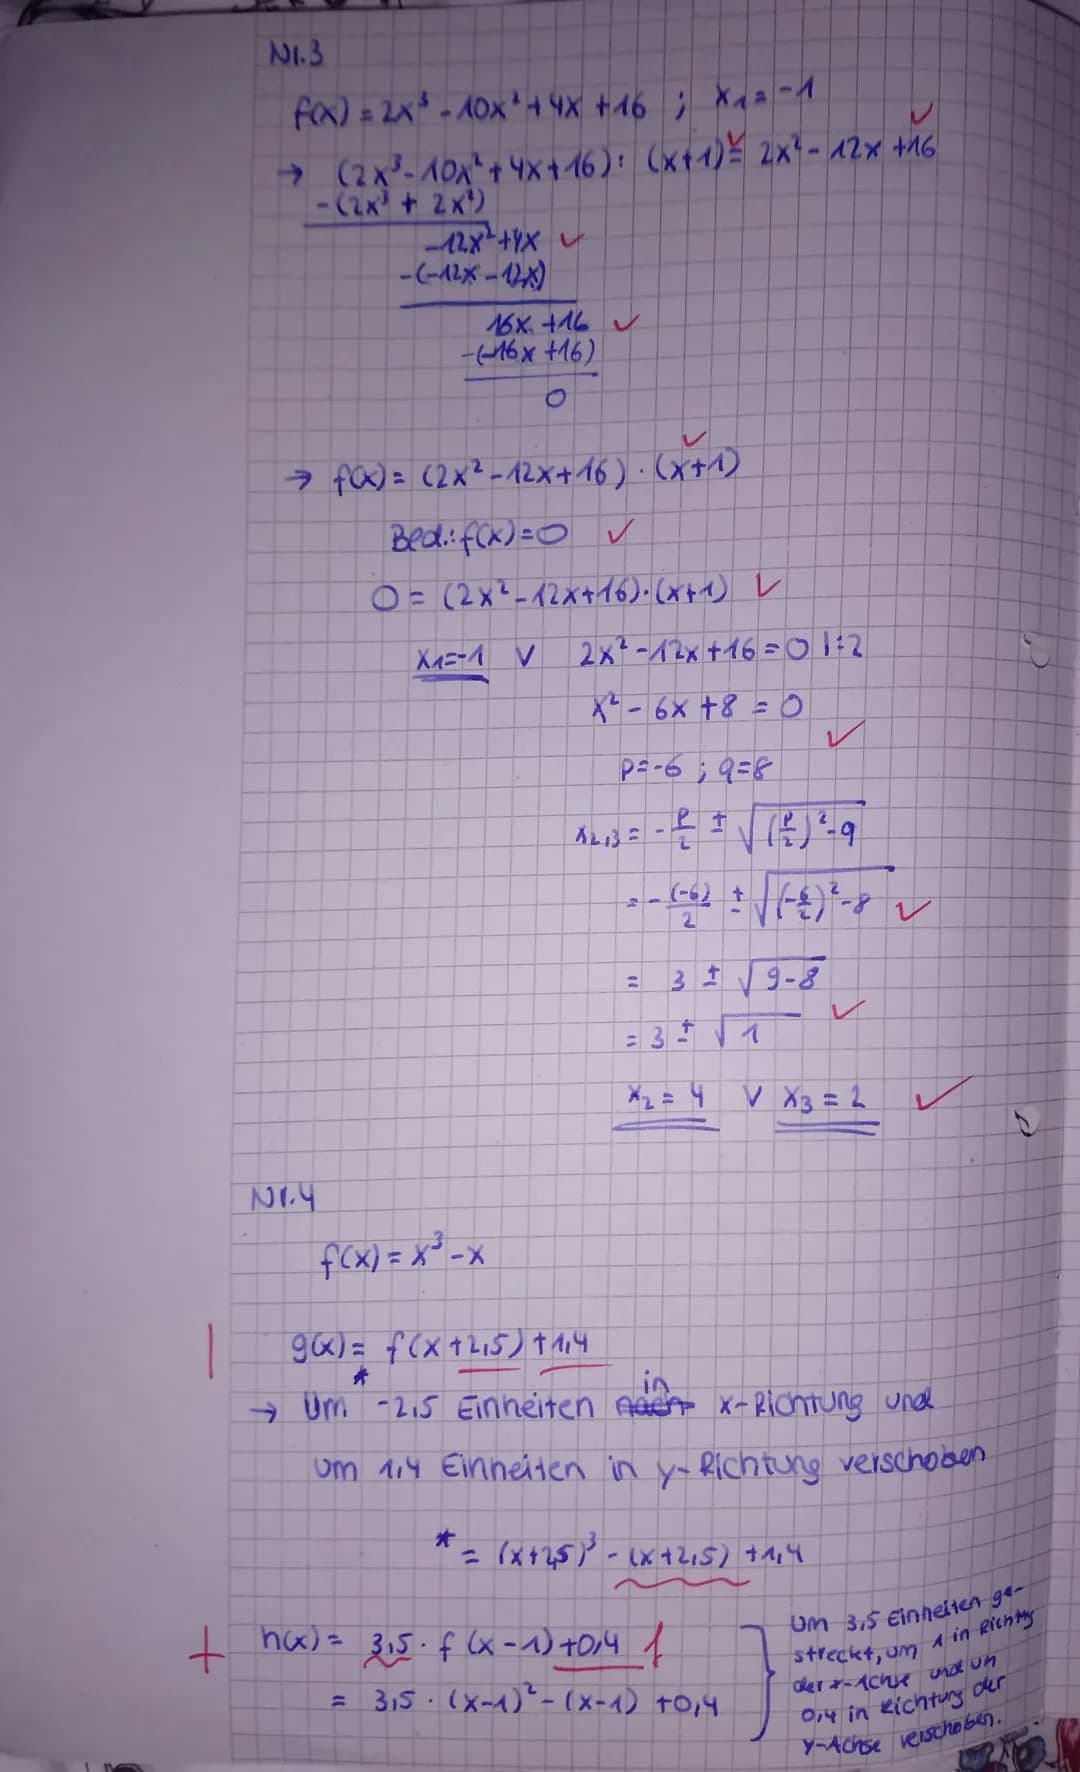 Nr.3
f(x) = 2x³ - 10x² + 4x + 16 ; x₁ = -1
→ (2x³ - 10x² + 4x + 16) : (x+1) = 2x² - 12x + 16
-(2x³ + 2x²)
-12x² + 4x
-(-12x - 12x)
16x + 16
-(-16x + 16)
0
→ f(x) = (2x² - 12x + 16) · (x+1)
Bed.: f(x) = 0
0 = (2x² - 12x + 16) · (x+1)
x₁ = -1 ∨ 2x² - 12x + 16 = 0 | :2
x² - 6x + 8 = 0
p = -6 ; q = 8
x₂,₃ = - p/2 ± √((p/2)² - q)
= - (-6)/2 ± √((-6/2)² - 8)
= 3 ± √(9-8)
= 3 ± √1
x₂ = 4 ∨ x₃ = 2
Nr.4
f(x) = x³ - x
| g(x) = f(x + 2,5) + 1,4
*
→ Um -2,5 Einheiten in x-Richtung und
um 1,4 Einheiten in y-Richtung verschoben
* = (x + 2,5)³ - (x + 2,5) + 1,4
+ h(x) = 3,5 · f(x-1) + 0,4 f
= 3,5 · (x-1)² - (x-1) + 0,4
Um 3,5 Einheiten ge-
streckt, um 1 in Richtung
der x-Achse und um
0,4 in Richtung der
y-Achse verschoben.